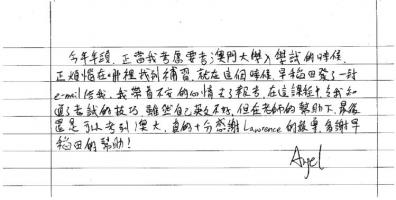 今年年頭，正當我考慮要考澳門大學入學試的時候，
正煩惱在哪裡找到補習，就在這個時候，早稻田發了一封
e-mail給我，我帶着不安的心情去了報考，在這課程中令我知
道了考試的技巧，雖然自己英文不好，但在老師的幫助下，最後
還是可以考到澳大，真的十分感謝Lawrence的教導，多謝早
稻田的幫助！
Angel